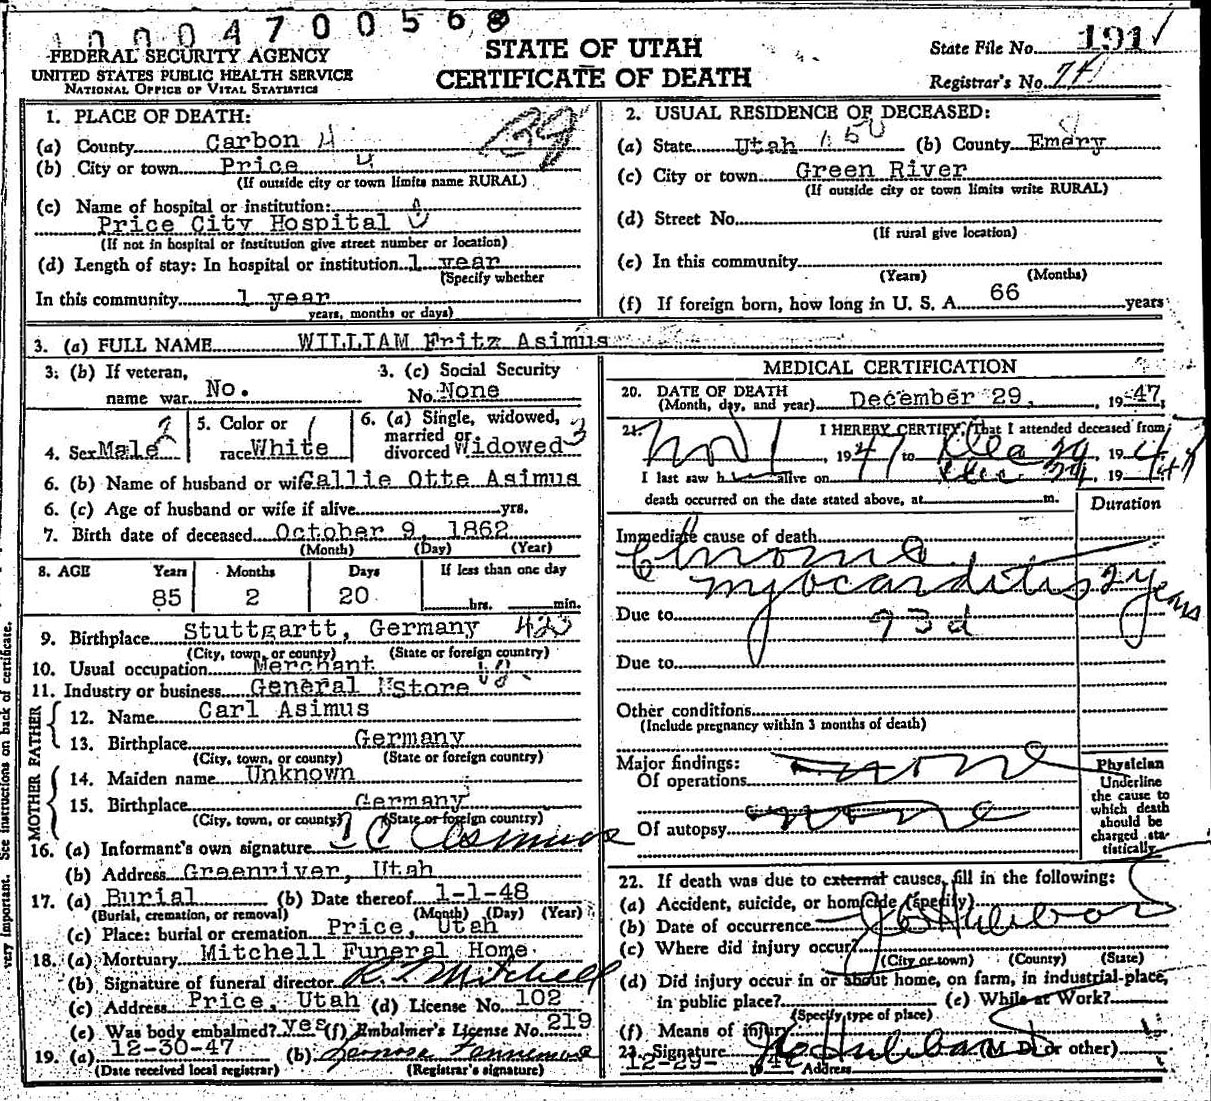 10004700568
FEDERAL SECURITY AGENCY
UNITED STATES PUBLIC HEALTH SERVICE
NATIONAL OFFICE OF VITAL STATISTICS
STATE OF UTAH
CERTIFICATE OF DEATH
State File No. 191
Registrar's No. 74
1. PLACE OF DEATH:
(a) County Carbon 4
(b) City or town Price 4
(If outside city or town limits name RURAL)
139
(c) Name of hospital or institution:
Price City Hospital
(If not in hospital or institution give street number or location)
(d) Length of stay: In hospital or institution 1 year
(Specify whether
In this community 1 year
years, months or days)
2. USUAL RESIDENCE OF DECEASED:
(a) State Utah (b) County Emery
(c) City or town Green River
(If outside city or town limits write RURAL)
(d) Street No.
(If rural give location)
(e) In this community
(Years) (Months)
(f) If foreign born, how long in U. S. A. 66 years
3. (a) FULL NAME WILLIAM Fritz Asimus
3. (b) If veteran, name war No.
3. (c) Social Security No. None
4. Sex Male
5. Color or race White
6. (a) Single, widowed, married or divorced Widowed 3
6. (b) Name of husband or wife Callie Otte Asimus
6. (c) Age of husband or wife if alive yrs.
7. Birth date of deceased October 9, 1862
(Month) (Day) (Year)
8. AGE Years Months Days If less than one day
85 2 20 hrs. min.
9. Birthplace Stuttgartt, Germany 423
(City, town, or county) (State or foreign country)
10. Usual occupation Merchant
11. Industry or business General Store
FATHER
12. Name Carl Asimus
13. Birthplace Germany
(City, town, or county) (State or foreign country)
MOTHER
14. Maiden name Unknown
15. Birthplace Germany
(City, town, or county) (State or foreign country)
16. (a) Informant's own signature Asimus
(b) Address Greenriver, Utah
17. (a) Burial (b) Date thereof 1-1-48
(Burial, cremation, or removal) (Month) (Day) (Year)
(c) Place: burial or cremation Price, Utah
18. (a) Mortuary Mitchell Funeral Home
(b) Signature of funeral director Mitchell
(c) Address Price, Utah (d) License No. 102
(e) Was body embalmed? yes (f) Embalmer's License No. 219
19. (a) 12-30-47 (b)
(Date received local registrar) (Registrar's signature)
MEDICAL CERTIFICATION
20. DATE OF DEATH
(Month, day, and year) December 29, 1947
21. I HEREBY CERTIFY, That I attended deceased from
Nov 1, 1947 to Dec 29, 1947
I last saw h alive on Dec 29, 1947
death occurred on the date stated above, at m.
Duration
Immediate cause of death
Chronic
myocarditis 2 years
Due to 93d
Due to
Other conditions
(Include pregnancy within 3 months of death)
Major findings:
Of operations none
Of autopsy none
Physician
Underline
the cause to
which death
should be
charged sta-
tistically.
22. If death was due to external causes, fill in the following:
(a) Accident, suicide, or homicide (specify)
(b) Date of occurrence
(c) Where did injury occur?
(City or town) (County) (State)
(d) Did injury occur in or about home, on farm, in industrial place,
in public place? (e) While at Work?
(Specify type of place)
(f) Means of injury
23. Signature (M. D. or other)
12-29- Address
very important. See instructions on back of certificate.